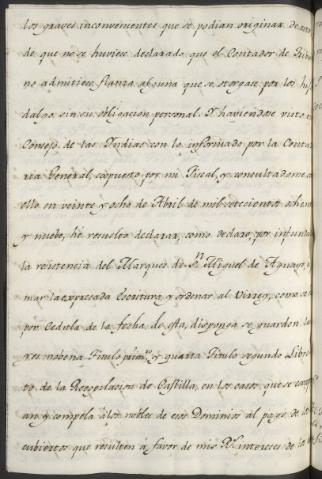 los graves inconvenientes que se podian originar de
de que no se huviese declarado que el Contador de
no admitiese fianza alguna que se otorgase por los hi
dalgo sin su obligacion personal. Y haviendose visto
Consejo de las Indias con lo informado por la Conta
ria General, expuesto por mi Fiscal, y consultadome
ello en veinte y ocho de Abril de mil setecientos ochen
y nueve, he resuelto declarar, como declaro, por infunda
la resistencia del Marques de Sn Miguel de Aguayo
mar la expresada Escritura, y ordenar al Virrey, como
por Cedula de la fecha de esta, disponga se guarden la
yes novena Titulo prim.º y quarta Titulo segundo Libro
to de la Recopilacion de Castilla, en los casos que se
an y compela a los nobles de esos Dominios al pago de
cubiertos que resulten á favor de mis Rs intereses de